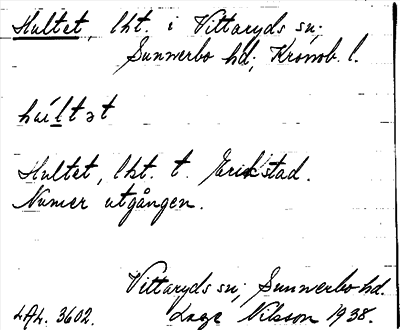 Hultet, lht. i Vittaryds sn;
Sunnerbo hd; Kronob. l.
hul̲tət
Hultet, lht. t. Erikstad.
Numer utgången.
Vittaryds sn; Sunnerbo hd.
LAL. 3602. Lage Nilsson 1938.